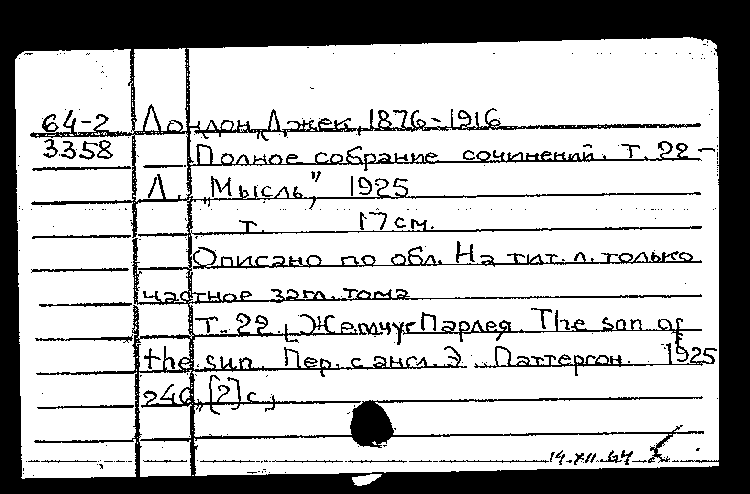 64-2 Лондон, Джек, 1876-1916
3358 Полное собрание сочинений. Т. 22-
Л. „Мысль“, 1925
т. 17 см.
Описано по обл. На тит. л. только
частное загл. тома
Т. 22. Жемчуг Парлея. The son of
the sun. Пер. с англ. Э. Паттерсон. 1925
240, [2] с.
14.XII.64